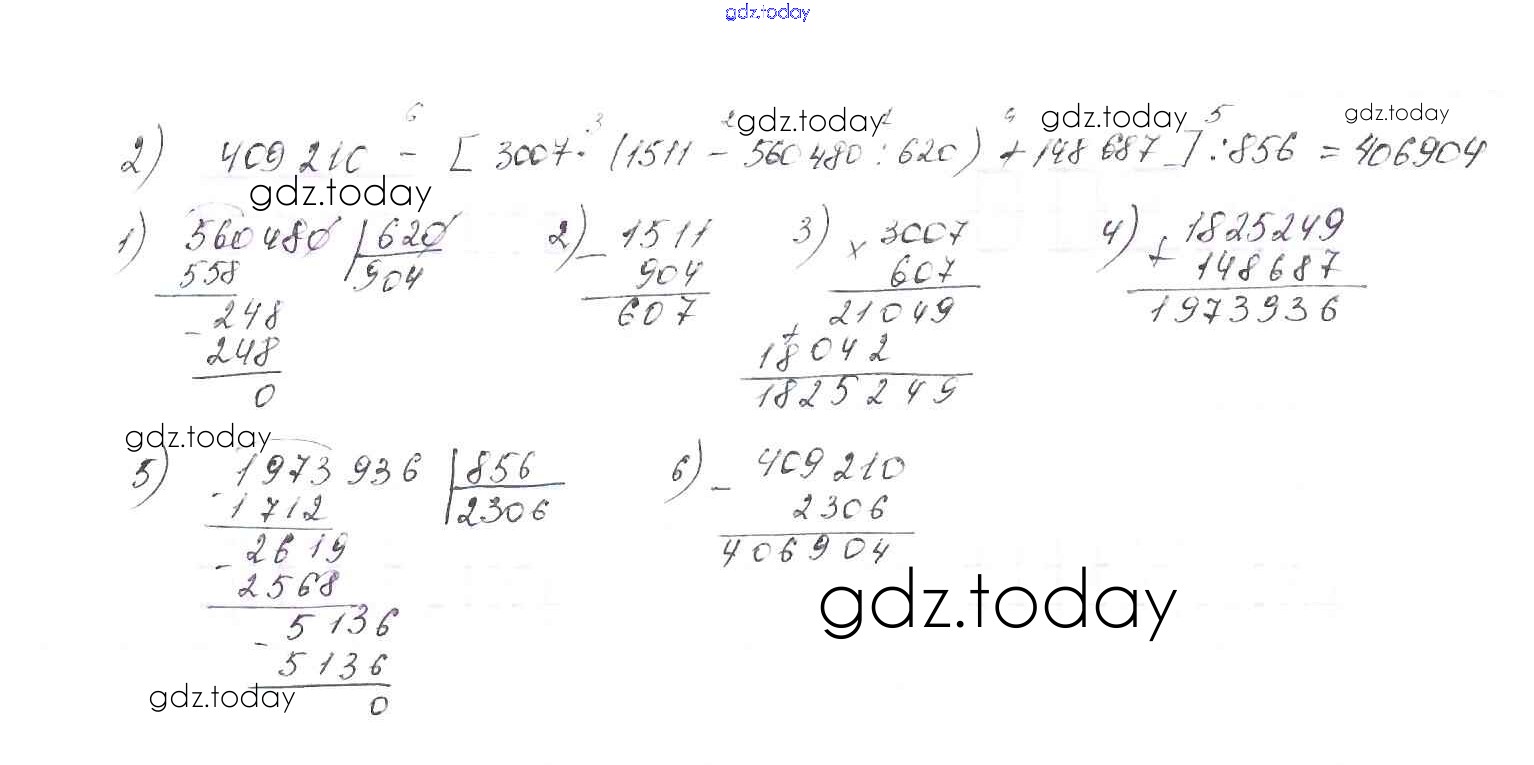 gdz.today
2) 409210 - [3007 · (1511 - 560480 : 620) + 148687] : 856 = 406904
6 3 2 1 4 5
gdz.today gdz.today gdz.today
gdz.today
1) 560480 | 620
558 904
- 248
248
0
2) - 1511
904
607
3) × 3007
607
21049
+
18042
1825249
4) + 1825249
148687
1973936
gdz.today
5) - 1973936 | 856
1712 2306
- 2619
2568
- 5136
5136
0
6) - 409210
2306
406904
gdz.today
gdz.today